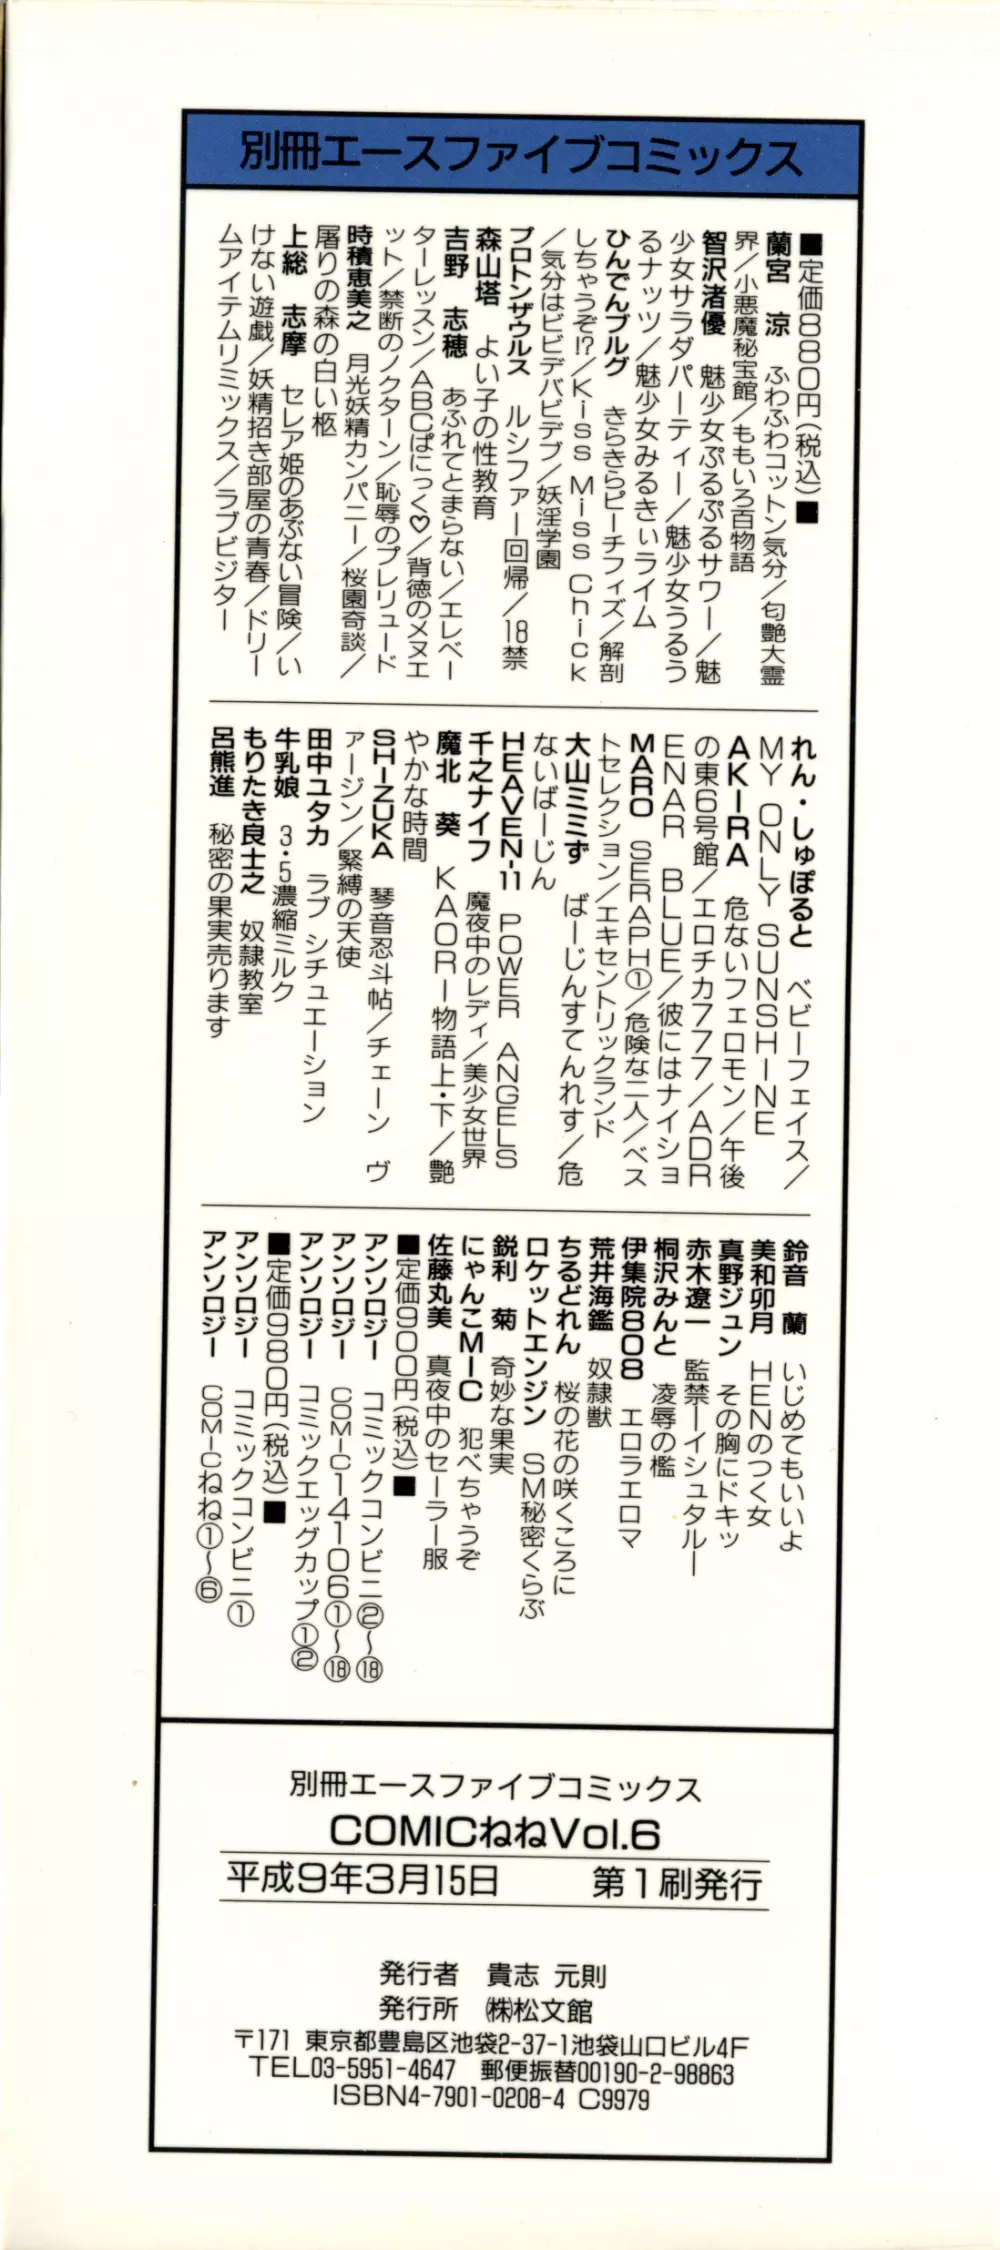 別冊エースファイブコミックス
■定価880円(税込)■
蘭宮　涼　ふわふわコットン気分／匂艶大霊
界／小悪魔秘宝館／ももいろ百物語
智沢渚優　魅少女ぷるぷるサワー／魅
少女サラダパーティー／魅少女うるう
るナッツ／魅少女みるきぃライム
ひんでんブルグ　きらきらピーチフィズ／解剖
しちゃうぞ!?／Kiss Miss Chick
／気分はビビデバビデブ／妖淫学園
プロトンザウルス　ルシファー回帰／18禁
森山塔　よい子の性教育
吉野　志穂　あふれてとまらない／エレベー
ターレッスン／ABCぱにっく♡／背徳のメヌエ
ット／禁断のノクターン／恥辱のプレリュード
時積恵美之　月光妖精カンパニー／桜園奇談／
屠りの森の白い柩
上総　志摩　セレア姫のあぶない冒険／い
けない遊戯／妖精招き部屋の青春／ドリー
ムアイテムリミックス／ラブビジター
れん・しゅぽると　ベビーフェイス／
MY ONLY SUNSHINE
AKIRA　危ないフェロモン／午後
の東6号館／エロチカ777／ADR
ENAR BLUE／彼にはナイショ
MARO　SERAPH①／危険な二人／ベス
トセレクション／エキセントリックランド
大山ミミず　ばーじんすてんれす／危
ないばーじん
HEAVEN-11　POWER ANGELS
千之ナイフ　魔夜中のレディ／美少女世界
魔北　葵　KAORI物語上・下／艶
やかな時間
SHIZUKA　琴音忍斗帖／チェーン　ヴ
ァージン／緊縛の天使
田中ユタカ　ラブ シチュエーション
牛乳娘　3・5濃縮ミルク
もりたき良士之　奴隷教室
呂熊進　秘密の果実売ります
鈴音　蘭　いじめてもいいよ
美和卯月　HENのつく女
真野ジュン　その胸にドキッ
赤木遼一　監禁ーイシュタルー
桐沢みんと　凌辱の檻
伊集院808　エロラエロマ
荒井海鑑　奴隷獣
ちるどれん　桜の花の咲くころに
ロケットエンジン　SM秘密くらぶ
鋭利　菊　奇妙な果実
にゃんこMIC　犯べちゃうぞ
佐藤丸美　真夜中のセーラー服
■定価900円(税込)■
アンソロジー　コミックコンビニ②～⑱
アンソロジー　COMIC14106①～⑱
アンソロジー　コミックエッグカップ①②
■定価980円(税込)■
アンソロジー　コミックコンビニ①
アンソロジー　COMICねね①～⑥
別冊エースファイブコミックス
COMICねねVol.6
平成9年3月15日　第1刷発行
発行者　貴志 元則
発行所　㈱松文館
〒171 東京都豊島区池袋2-37-1池袋山口ビル4F
TEL03-5951-4647　郵便振替00190-2-98863
ISBN4-7901-0208-4 C9979